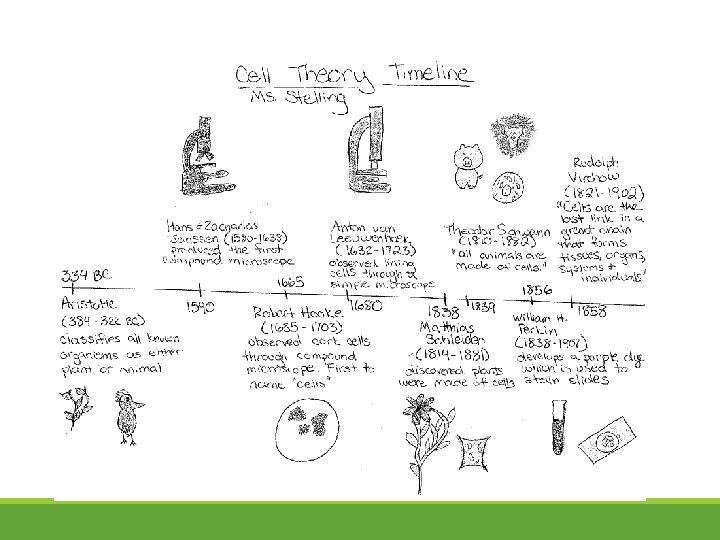 Cell Theory Timeline
Ms. Stelling
Hans + Zacharias
Janssen (1580-1638)
produced the first
compound microscope
Anton van
Leeuwenhoek
(1632-1723)
observed living
cells through a
simple microscope
Theodor Schwann
(1810-1882)
"all animals are
made of cells."
Rudolph
Virchow
(1821-1902)
"Cells are the
last link in a
great chain
that forms
tissues, organs,
systems +
individuals"
334 BC
1540
1665
1680
1838
1839
1856
1858
Aristotle
(384-322 BC)
classifies all known
organisms as either
plant or animal
Robert Hooke
(1635-1703)
observed cork cells
through compound
microscope. First to
name "cells"
Matthias
Schleiden
(1814-1881)
discovered plants
were made of cells
William H.
Perkin
(1838-1907)
develops a purple dye
which is used to
stain slides